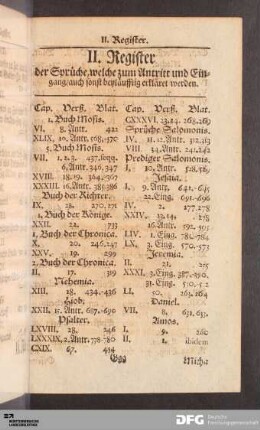 II. Register.
II. Register
der Sprüche, welche zum Antritt und Ein-
gang/auch sonst beyläufftig erkläret werden.
Cap. Verß. Blat.
1. Buch Mosis.
VI. 8. Antr. 422
XLIX. 10. Antr. 168. 170
5. Buch Mosis.
VII. 1. 2. 3. 437. seqq.
6. Antr. 346. 347
XVIII. 18. 19. 364. 367
XXXIII. 16. Antr. 385. 386
Buch der Richter.
IX. 28. 270. 271
1. Buch der Könige.
XXII. 21. 733
1. Buch der Chronica.
X. 20. 246. 247
XXV. 19. 299
2. Buch der Chronica.
II. 17. 319
Nehemia.
XIII. 18. 434. 436
Hiob.
XXII. 15. Antr. 687. 690
Psalter.
LXVIII. 28. 246
LXXXIX. 2. Antr. 778. 780
CXIX. 67. 414
Cap. Verß. Blat.
CXXXVI. 23. 24. 268. 269
Sprüche Salomonis.
IV. 11. 12. Antr. 312. 313
VIII. 34. Antr. 241. 242
Prediger Salomonis.
I. 10. Antr. 528. 529
Jesaia.
I. 9. Antr. 641. 645
22. Eing. 691. 696
IV. 277. 278
XXIV. 23. 24. 278
16. Antr. 592. 595
LIV. 1. Eing. 780. 784
LX. 3. Eing. 570. 573
Jeremia.
II. 21.
XXXI. 3. Eing. 387. 390.
31. Eing. 510.
LI. 10. 263. 264
Daniel.
VII. 8. 631. 633.
Amos.
I. 9. 260
II. 1. ibidem
Ggg
Micha
DFG Deutsche
Forschungsgemeinschaft